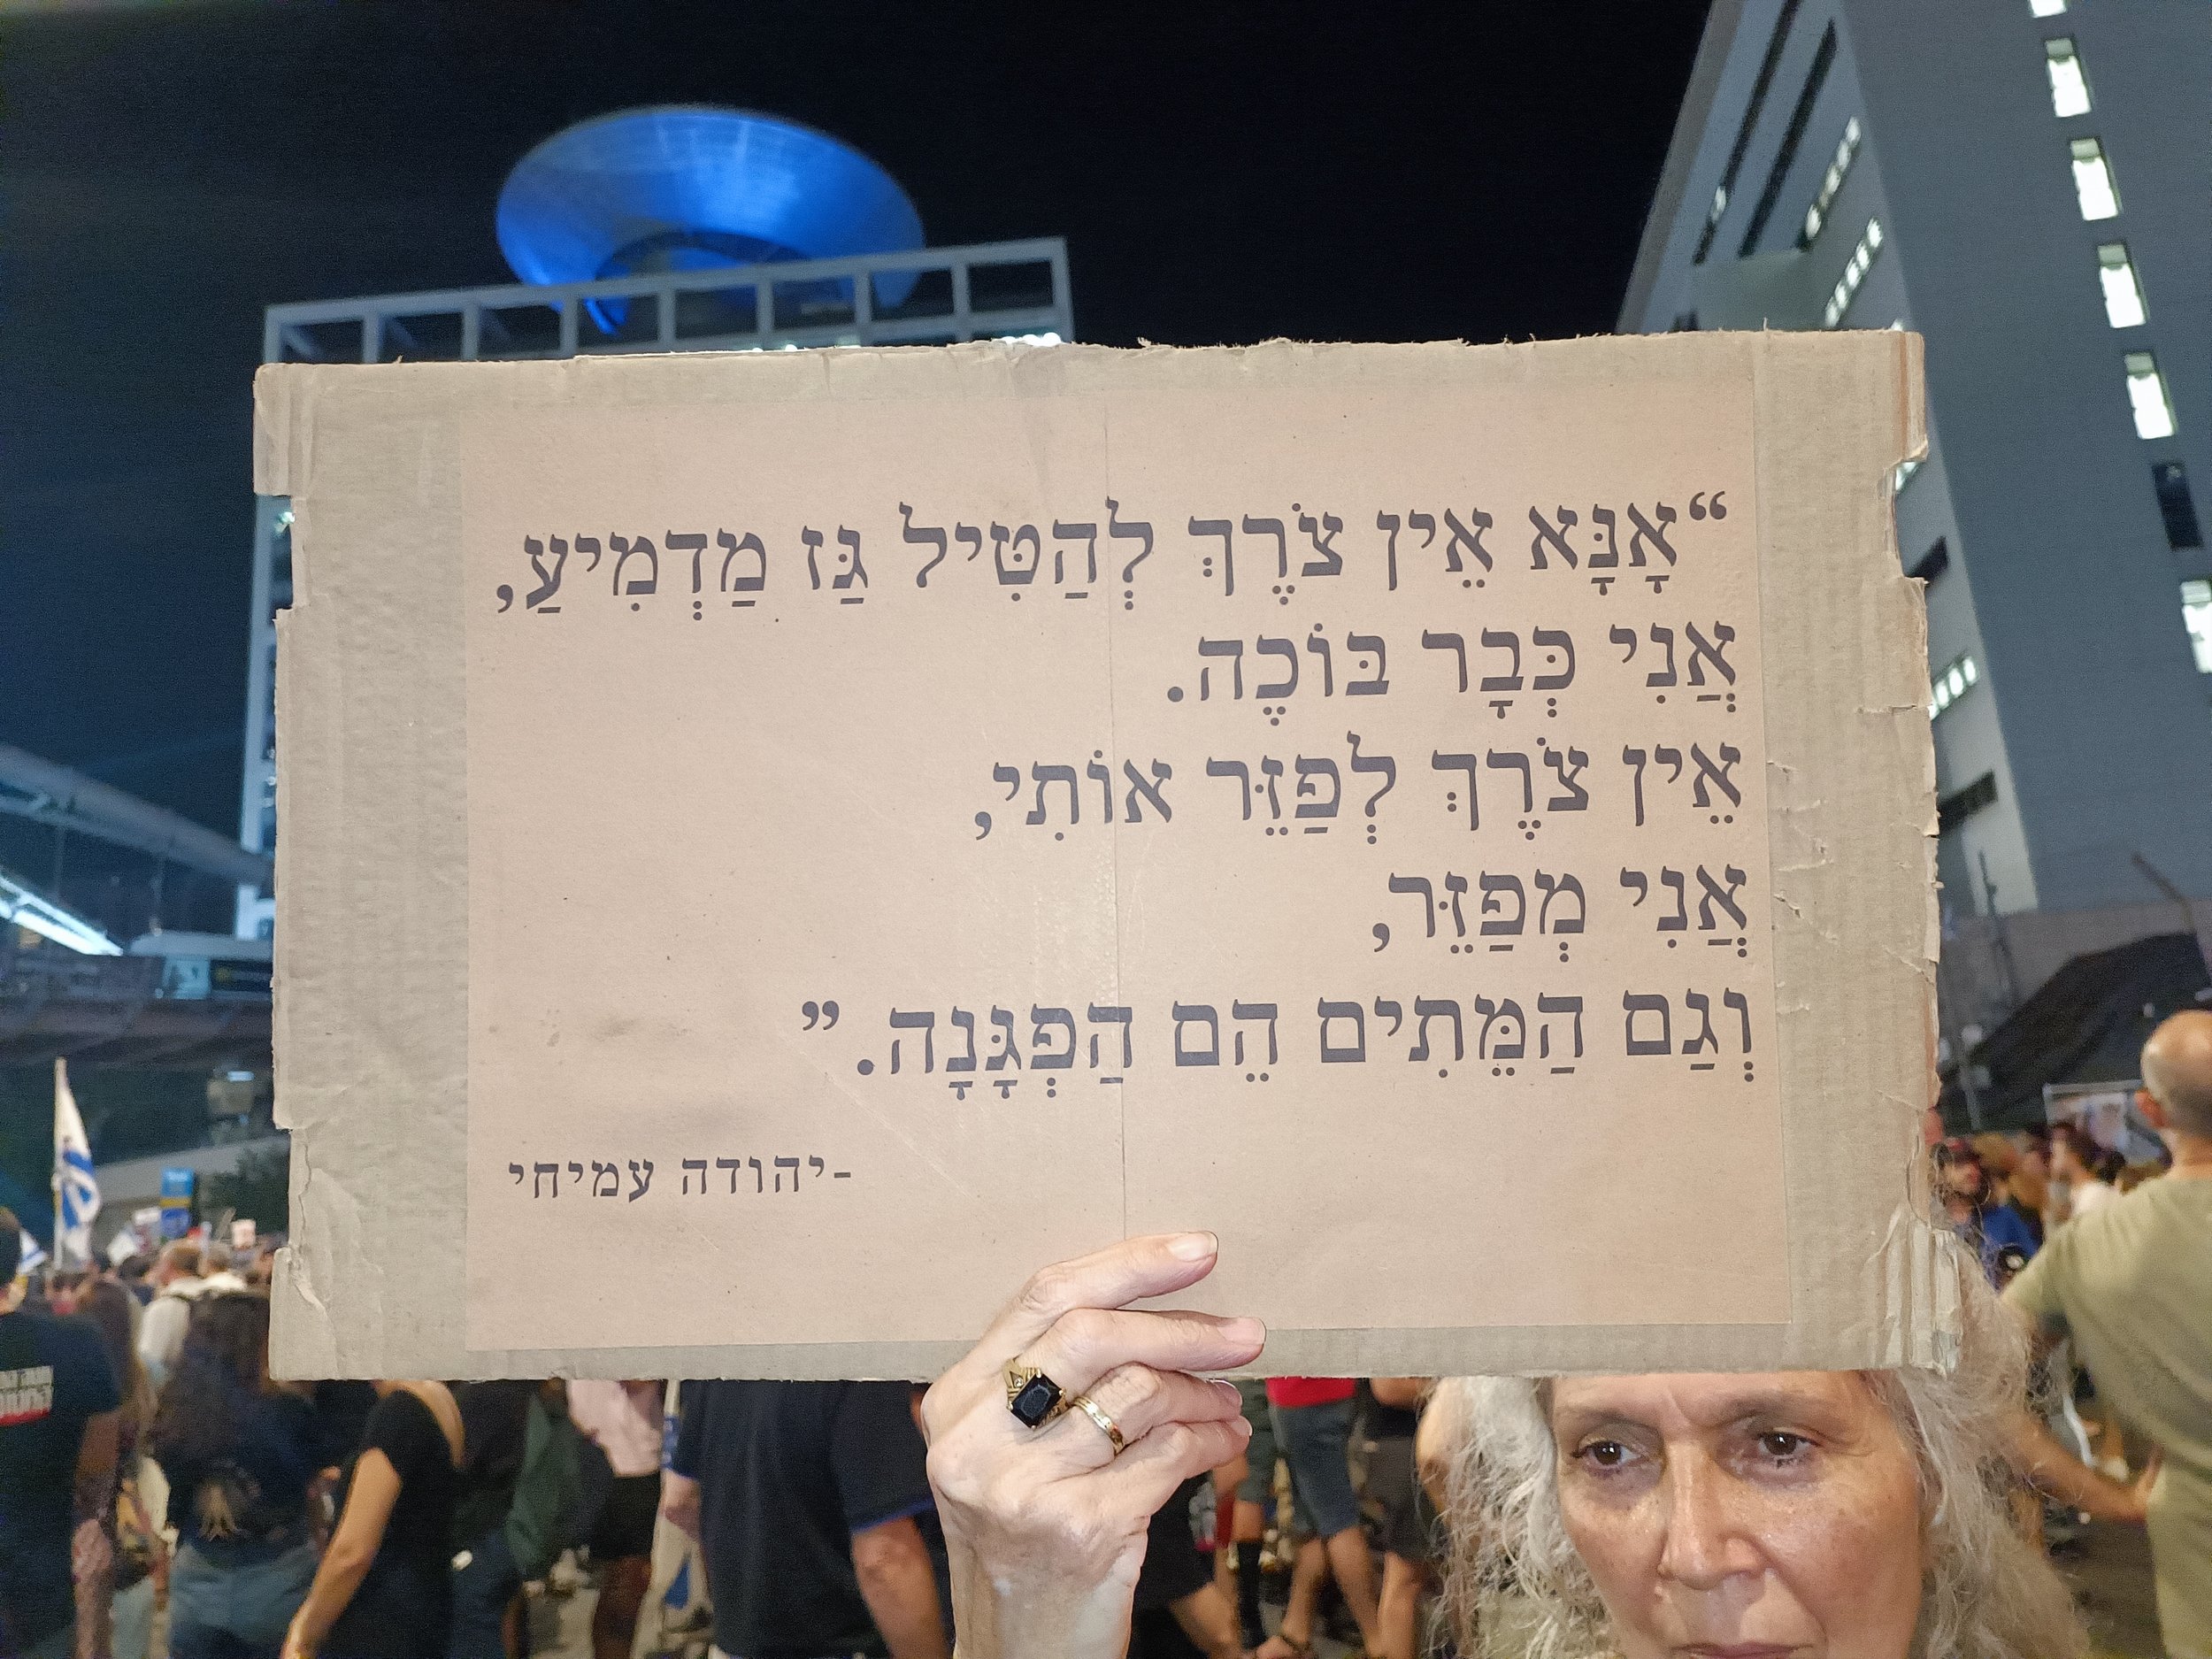 “אָנָּא אֵין צֹרֶךְ לְהַטִּיל גַּז מַדְמִיעַ,
אֲנִי כְּבָר בּוֹכֶה.
אֵין צֹרֶךְ לְפַזֵּר אוֹתִי,
אֲנִי מְפַזֵּר,
וְגַם הַמֵּתִים הֵם הַפְגָּנָה.”
-יהודה עמיחי